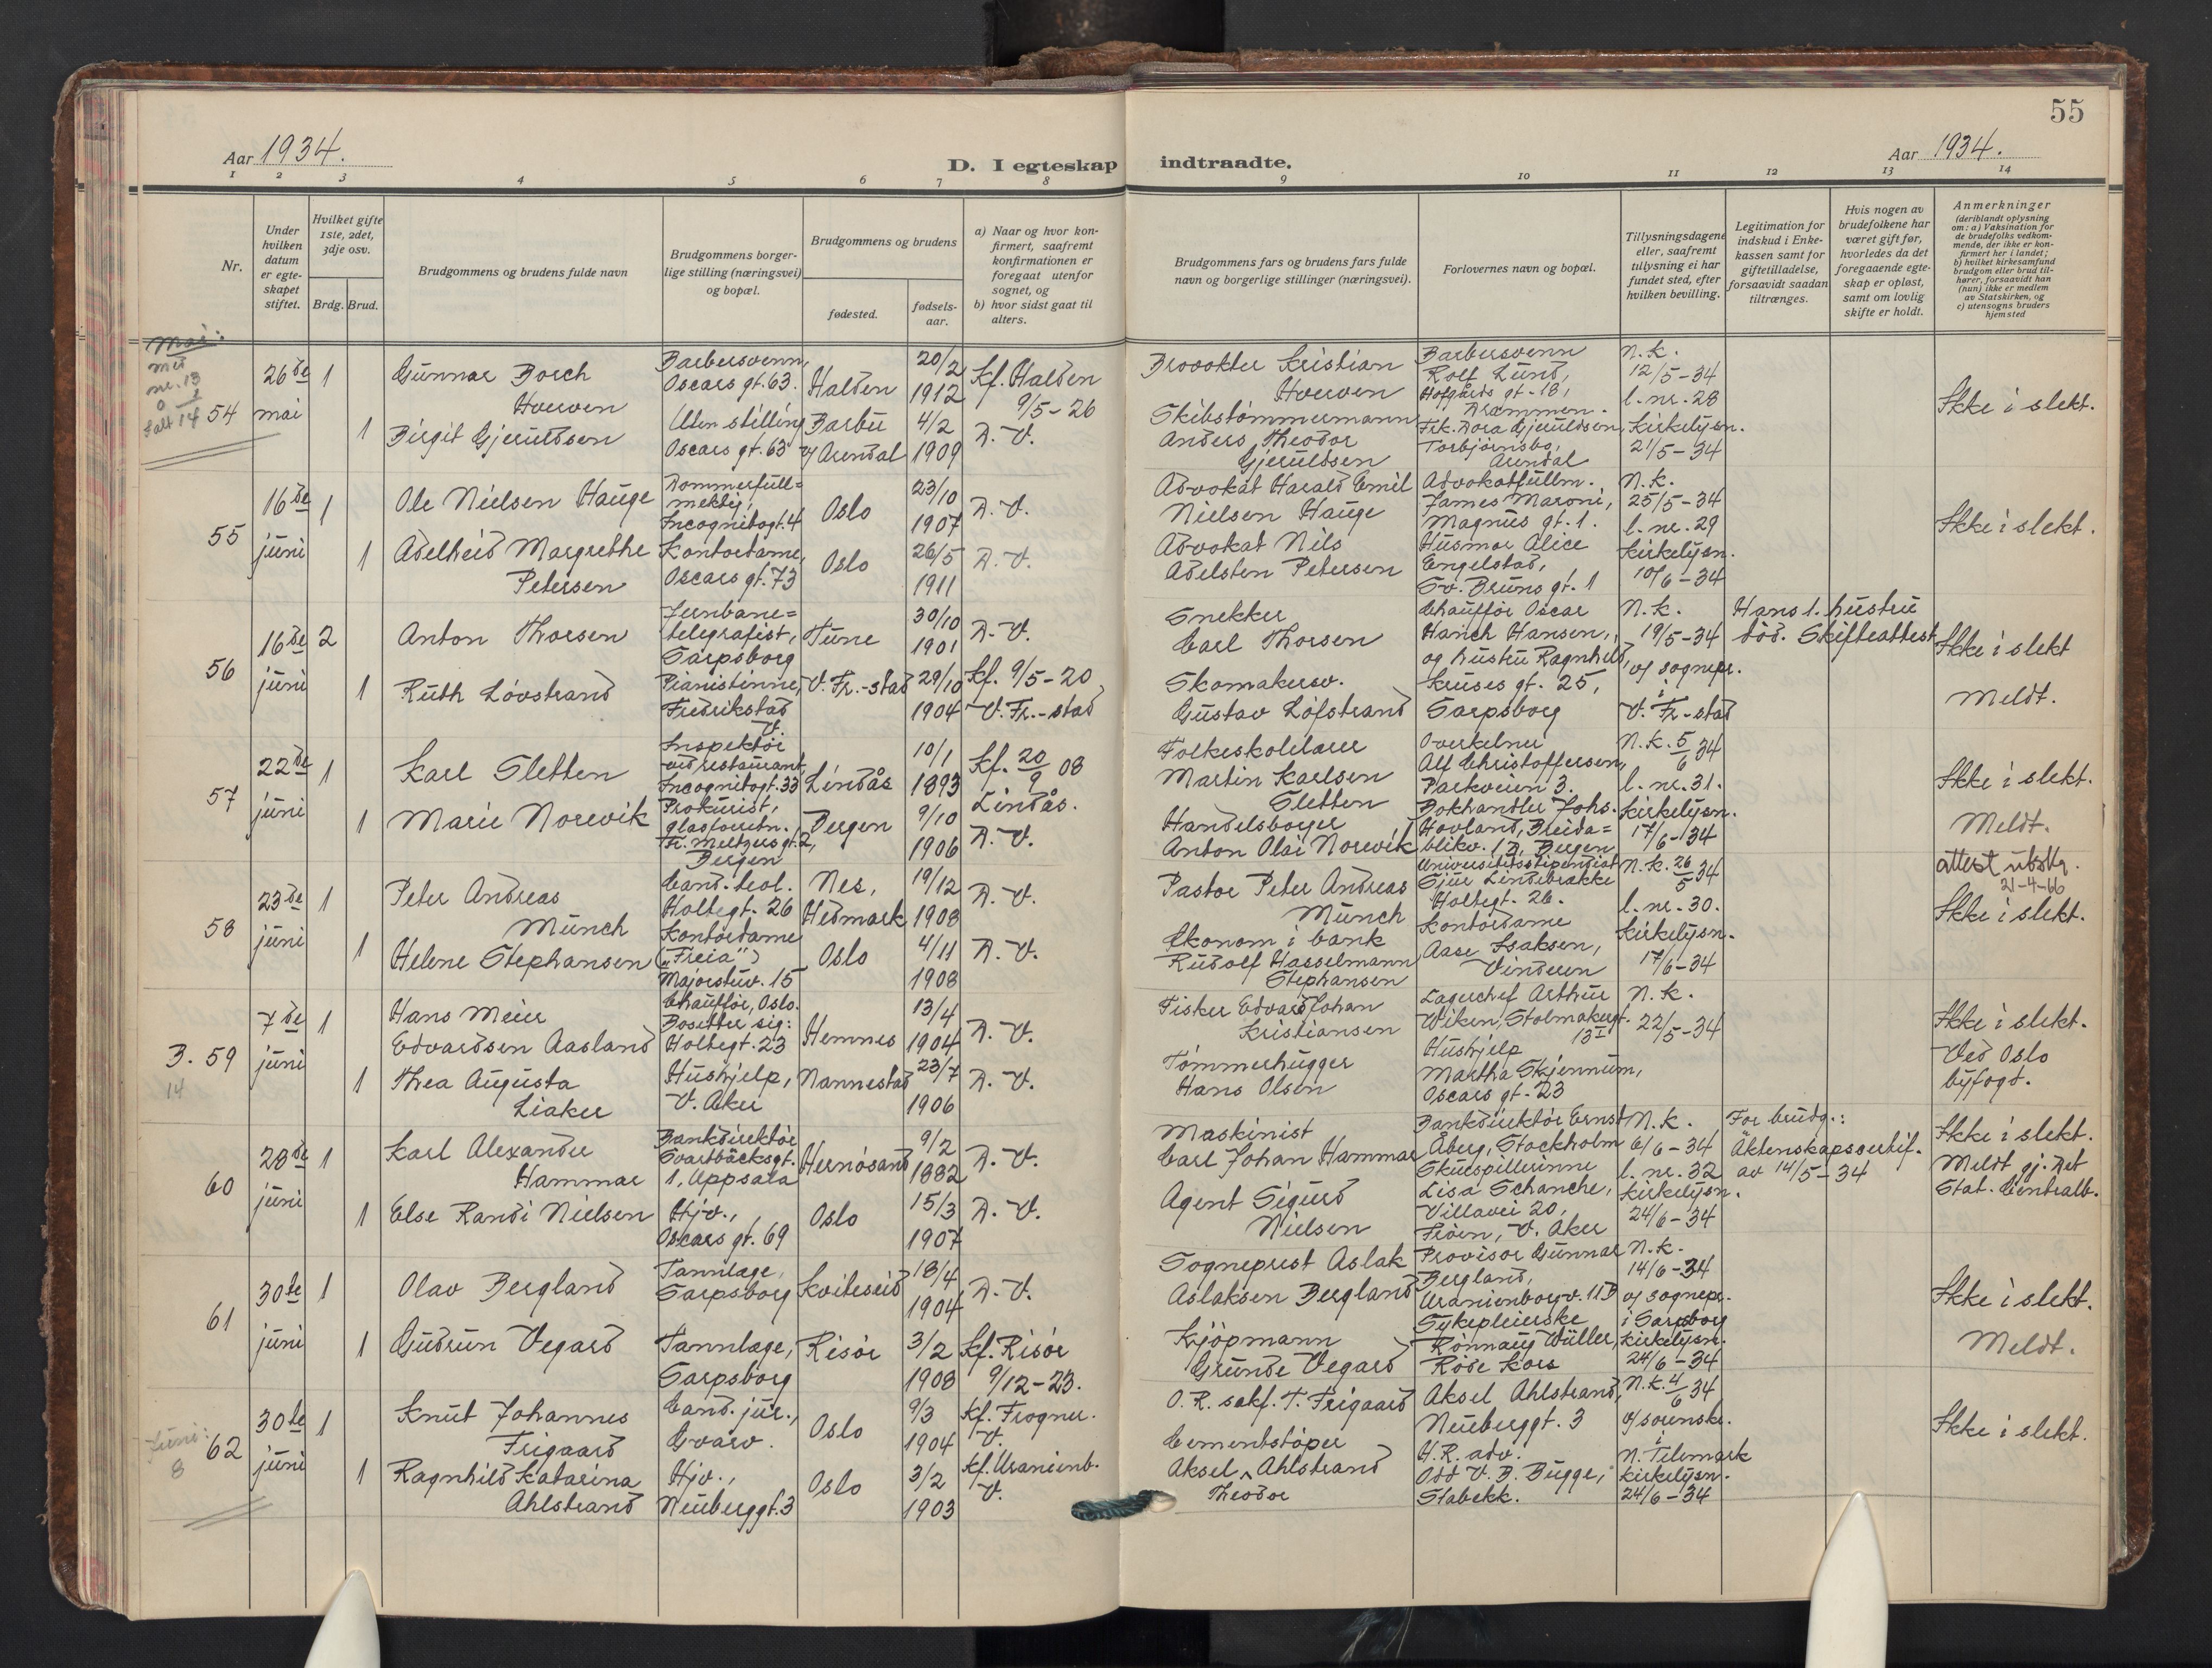 55
Aar 1934.
D. I egteskap indtraadte.
Aar 1934.
1 2 3 4 5 6 7 8 9 10 11 12 13 14
Nr.
Under hvilken datum er egteskapet stiftet.
Hvilket gifte 1ste, 2det, 3dje osv.
Brdg. Brud.
Brudgommens og brudens fulde navn
Brudgommens borgerlige stilling (næringsvei) og bopæl.
Brudgommens og brudens
fødested.
fødselsaar.
a) Naar og hvor konfirmert, saafremt konfirmationen er foregaat utenfor sognet, og
b) hvor sidst gaat til alters.
Brudgommens fars og brudens fars fulde navn og borgerlige stillinger (næringsvei).
Forlovernes navn og bopæl.
Tillysningsdagene eller, saafremt tillysning ei har fundet sted, efter hvilken bevilling.
Legitimation for indskud i Enkekassen samt for giftetilladelse, forsaavidt saadan tiltrænges.
Hvis nogen av brudefolkene har været gift før, hvorledes da det foregaaende egteskap er opløst, samt om lovlig skifte er holdt.
Anmerkninger
(deriblandt oplysning om: a) Vaksination for de brudefolks vedkommende, der ikke er konfirmert her i landet; b) hvilket kirkesamfund brudgom eller brud tilhører, forsaavidt han (hun) ikke er medlem av Statskirken, og c) utensogns bruders hjemsted
Mai:
54
26de mai
1
Gunnar Borch Hoerven
Barbersvenn, Oscars gt. 63.
Halden
20/2 1912
Kf. Halden 9/5-26
1
Birgit Gjeruldsen
Uten stilling Oscars gt. 63
Barbu v/ Arendal
4/2 1909
D. V.
Kristian Hoerven
Skibstømmermann Anders Theodor Gjeruldsen
Barbersvenn Rolf Lund, Hofgårds gt. 18, Drammen.
Frk. Dora Gjeruldsen, Torbjørnsbo, Arendal
N.k. 12/5-34 l. nr. 28 Kirkelysn. 21/5-34
Ikke i slekt.
55
16de juni
1
Ole Nielsen Hauge
Dommerfullmektig, Incognitogt. 4
Oslo
23/10 1907
D. V.
1
Adelheid Margrethe Petersen
Kontordame, Oscars gt. 73
Oslo
26/5 1911
D. V.
Advokat Harald Emil Nielsen Hauge
Advokat Nils Adelsten Petersen
Advokatfullm. James Maroni, Magnus gt. 1.
Husmor Alice Engelstad, Sv. Bruns gt. 1
N.k. 25/5-34 l. nr. 29 Kirkelysn. 10/6-34
Ikke i slekt.
56
16de juni
2
Anton Thorsen
Jernbane=telegrafist, Sarpsborg
Tune
30/10 1901
D. V.
1
Ruth Lövstrand
Pianistinne, Fredrikstad V.
V. Fr.-stad
29/10 1904
Kf. 9/5-20 V. Fr.-stad
Snekker Carl Thorsen
Skomakersv. Gustav Löfstrand
Chauffør Oscar Hanch Hansen, og hustru Ragnhild, Kruses gt. 25, Sarpsborg
N.k. 19/5-34 v/ sognepr. i V. Fr-stad
Hans 1. hustru död. Skifteattest
Ikke i slekt
Meldt.
57
22de juni
1
Karl Sletten
Inspektør ved restaurant, Incognitogt. 33
Lindås
10/1 1893
Kf. 20/9 08 Lindås.
1
Marie Norevik
Prokurist, glassforretn. Fr. Meltzers gt. 2, Bergen
Bergen
9/10 1906
D. V.
Folkeskolelærer Martin Karlsen Sletten
Handelsborger Anton Olai Norevik
Overkelner Alf Christoffersen, Parkveien 3.
Bokhandler Johs. Hovland, Breida=blikv. 1B, Bergen
N.k. 5/6 34 l. nr. 31. Kirkelysn. 17/6-34
Ikke i slekt.
Meldt.
58
23de juni
1
Peter Andreas Munch
Cand. teol. Holtegt. 26
Nes, Hedmark
19/12 1908
D. V.
1
Helene Stephansen
Kontordame ("Freia") Majorstuv. 15
Oslo
4/11 1908
D. V.
Pastor Peter Andreas Munch
Økonom i bank Rudolf Hasselmann Stephansen
Universitetsstipendiat Sjur Lindebrække Holtegt. 26.
Kontordame Aase Isaksen, Vinderen
N.k. 26/5 34 l. nr. 30. Kirkelysn. 17/6-34
attest utstdr. 21-4-66
Ikke i slekt.
3. 59
14
7de juni
1
Hans Meier Edvardsen Aasland
Chauffør, Oslo. Bosetter sig: Holtegt. 23
Hemnes
13/4 1904
D. V.
1
Thea Augusta Liaker
Hushjelp, V. Aker
Nannestad
23/7 1906
D. V.
Fisker Edvard Johan Kristiansen
Tömmerhugger Hans Olsen
Lagerchef Arthur Wiken, Stolmakergt. 13 I
Hushjelp Martha Skjennum, Oscars gt. 23
N.k. 22/5-34
Ikke i slekt.
Ved Oslo byfogd.
60
28de juni
1
Karl Alexander Hammar
Bankdirektør Svartbäcksgt. 1, Uppsala
Hernösand
9/2 1882
D. V.
1
Else Randi Nielsen
Hjv., Oscars gt. 69
Oslo
15/3 1907
D. V.
Maskinist Carl Johan Hammar
Agent Sigurd Nielsen
Bankdirektør Ernst Åberg, Stockholm
Skuespillerinne Lisa Schanche, Villavei 20, Frøen, V. Aker
N.k. 6/6-34 l. nr. 32 Kirkelysn. 24/6-34
For brudg.: Äktenskapscertif. av 14/5-34
Ikke i slekt.
Meldt gj. Det Stat. Centralb.
61
30te juni
1
Olav Bergland
Tannlæge, Sarpsborg
Kviteseid
18/4 1904
D. V.
1
Gudrun Vegard
Tannlæge, Sarpsborg
Risør
3/2 1908
Kf. Risør 9/12-23.
Sogneprest Aslak Aslaksen Bergland
Kjöpmann Grunde Vegard
Provisor Gunnar Bergland, Uranienborgv. 11B
Sykepleierske Rønnaug Wüller, Røde Kors
N.k. 14/6-34 v/ sognepr. i Sarpsborg Kirkelysn. 24/6-34
Ikke i slekt.
Meldt.
Juni: 8
62
30te juni
1
Knut Johannes Frigaard
Cand. jur., Gvarv.
Oslo
9/3 1904
Kf. Frogner. V.
1
Ragnhild Katarina Ahlstrand
Hjv., Neuberggt. 3
Oslo
3/2 1903
Kf. Uranienb. V.
O. R. sakf. T. Frigaard
Cementstöper Aksel Theodor Ahlstrand
Aksel Ahlstrand, Neuberggt. 3
H.R. adv. Odd V. B. Bugge, Stabekk.
N.k. 4/6 34 v/ sorenskr. i N. Telemark Kirkelysn. 24/6-34
Ikke i slekt.